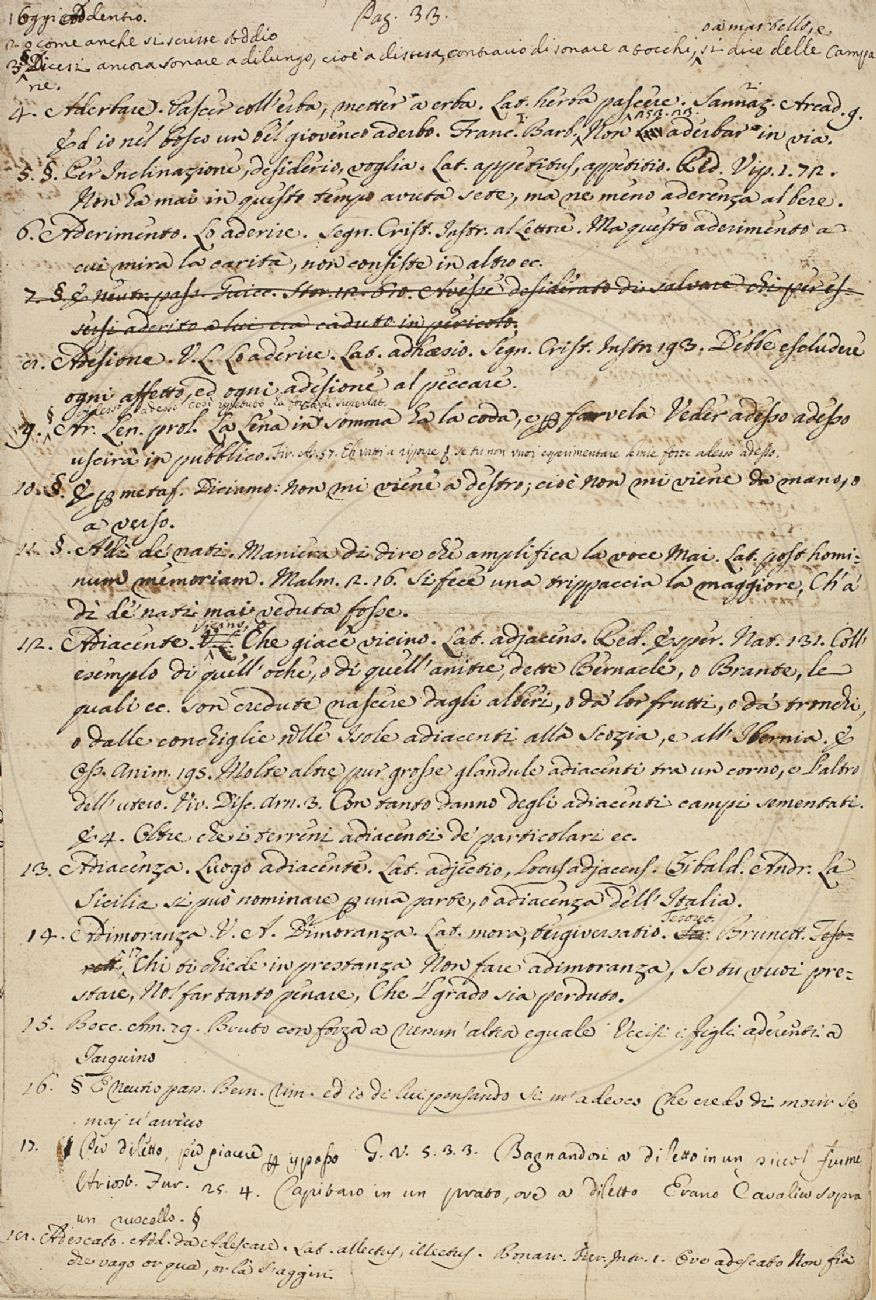 Pag. 33.
1 Oggi Addentro.
2. o come anche si scrisse oddio
o a martello, e
3 § Dicesi ancora sonare a dilungo, cioè a distesa, contrario di sonare a tocchi, si dice delle Campa
ne.
4. Aderbare. Pascer coll'erba, metter a erba. Lat. herba pascere. Sannaz. Arcad. 9.
Ed io nel bosco un bel giovenco aderbo. Franc. Barb. Non aderbar in via.
5. §. Per Inclinazione, desiderio, voglia. Lat. appetitus, appetitio. Red. Vip. 1. 72.
Non ha mai in questo tempo avuta sete, ma ne meno aderenza al bere.
6. Aderimento. Lo aderire. Segn. Crist. Instr. al Lettre. Ma questo aderimento a
cui mira la carità, non consiste in altro ec.
7. §. E neutr. pass. Guicc. Stor. 12. 610. Avesse desiderato di salvare chi per es-
sersi aderito a lui era caduto in pericolo.
8. Adesione. V. L. Lo aderire. Lat. adhæsio. Segn. Crist. Instr. 193. Debbe escludere
ogni affetto, ed ogni adesione al peccare.
9. § Ar. Len. prol. La Lena in somma ha la coda, e p farvela Veder adesso adesso
uscirà in pubblico.
10. §. E p metaf. Diciamo: Non mi viene a destro; cioè Non mi viene da mano, o
a verso.
11. §. A dì de' nati. Maniera di dire che amplifica la voce Mai. Lat. post homi-
num memoriam. Malm. 2. 16. Si fece una trippaccia la maggiore, Ch'a
dì de' nati mai veduta fosse.
12. Adiacente. Vicino, o Che giace vicino. Lat. adjacens. Red. Esper. Nat. 131. Coll'
esempio di quell'oche, o di quell'anitre, dette Bernacle, o Brante, le
quali ec. son credute nascere dagli alberi, o da' lor frutti, o da' tronchi,
o dalle conchiglie nelle Isole adiacenti alla Scozia, e all'Ibernia. E
Oss. Anim. 195. Molte altre pur grosse glandule adiacenti tra un corno, e l'altro
dell'utero. Viv. Disc. Arn. 3. Con tanto danno degli adiacenti campi sementati.
E 4. Oltre che i terreni adiacenti de' particolari ec.
13. Adiacenza. Luogo adiacente. Lat. adjectio, locus adjacens. Tibald. Andr. La
Sicilia si può nominare p una parte, o adiacenza dell'Italia.
14. Adimoranza. V. A. Dimoranza. Lat. mora, tergiversatio. Brunett. Teso-
rett. Chi ti chiede in prestanza Non fare adimoranza, Se tu vuoi pre-
stare, Nol far tanto penare, Che 'l grado sia perduto.
15. Bocc. Am. 29. Bruto con forza a nessun'altra eguale Uccisi i figli aderenti a
Tarquino
16. § E Neutro pass. Bem. rim. ed io di lui pensando Si m'adesco Che credo di morir se
mai n'avvico
17. Per diletto, per piacere p ispasso G. V. 5. 3. 3. Bagnandosi a diletto in un piccol fiume
Ariost. Fur. 25. 4. Capitaro in un prato, ove a diletto Erano Cavalier sopra
un ruscello. §
18. Adescato. Add. da Adescare. Lat. allectus, illectus. Bonarr. Fier. Intr. 1. Ove adescato Non fia
che vago or qua, or là s'aggiri.